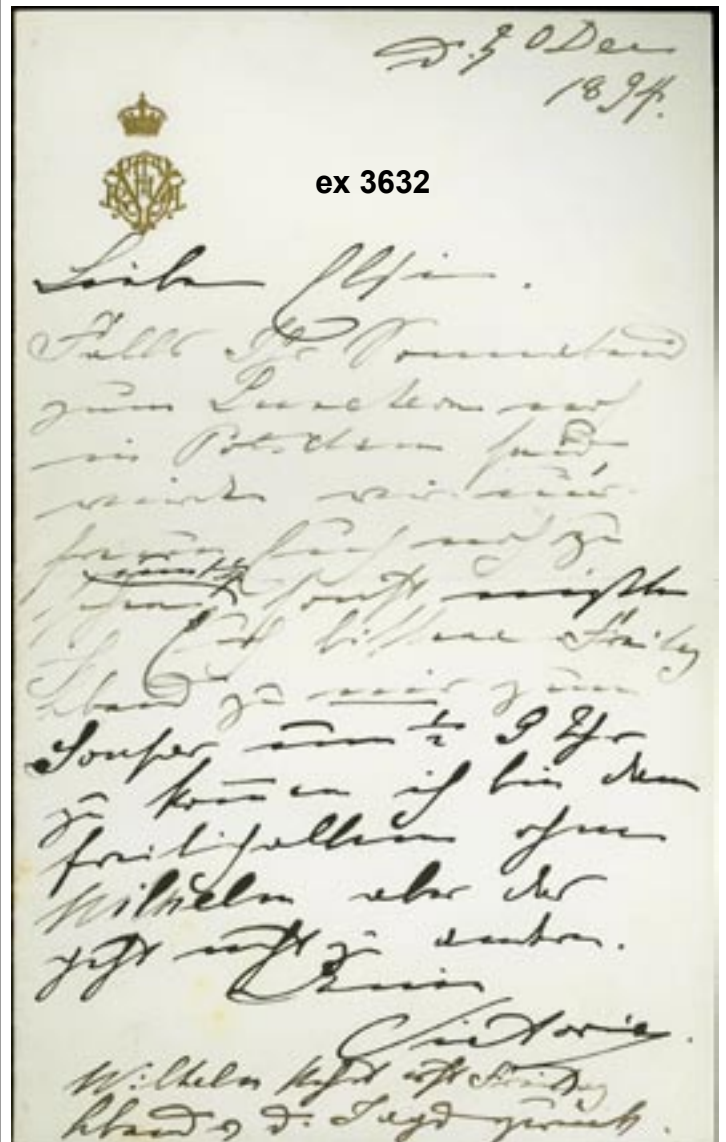 D. 20 Dec
1894.
ex 3632
Liebe Elsie.
Falls Ihr Sonnabend
zum Luncheon noch
in Potsdam seid
würden wir uns
freuen Euch noch zu
sehen sonst müßte
ich Euch bitten Freitag
Abend zu mir zum
Souper um ½ 9 Uhr
zu kommen ich bin dann
freilich allein ohne
Wilhelm aber das
geht nicht zu ändern.
Deine
Victoria.
Wilhelm kehrt erst Freitag
Abend v. d. Jagd zurück.